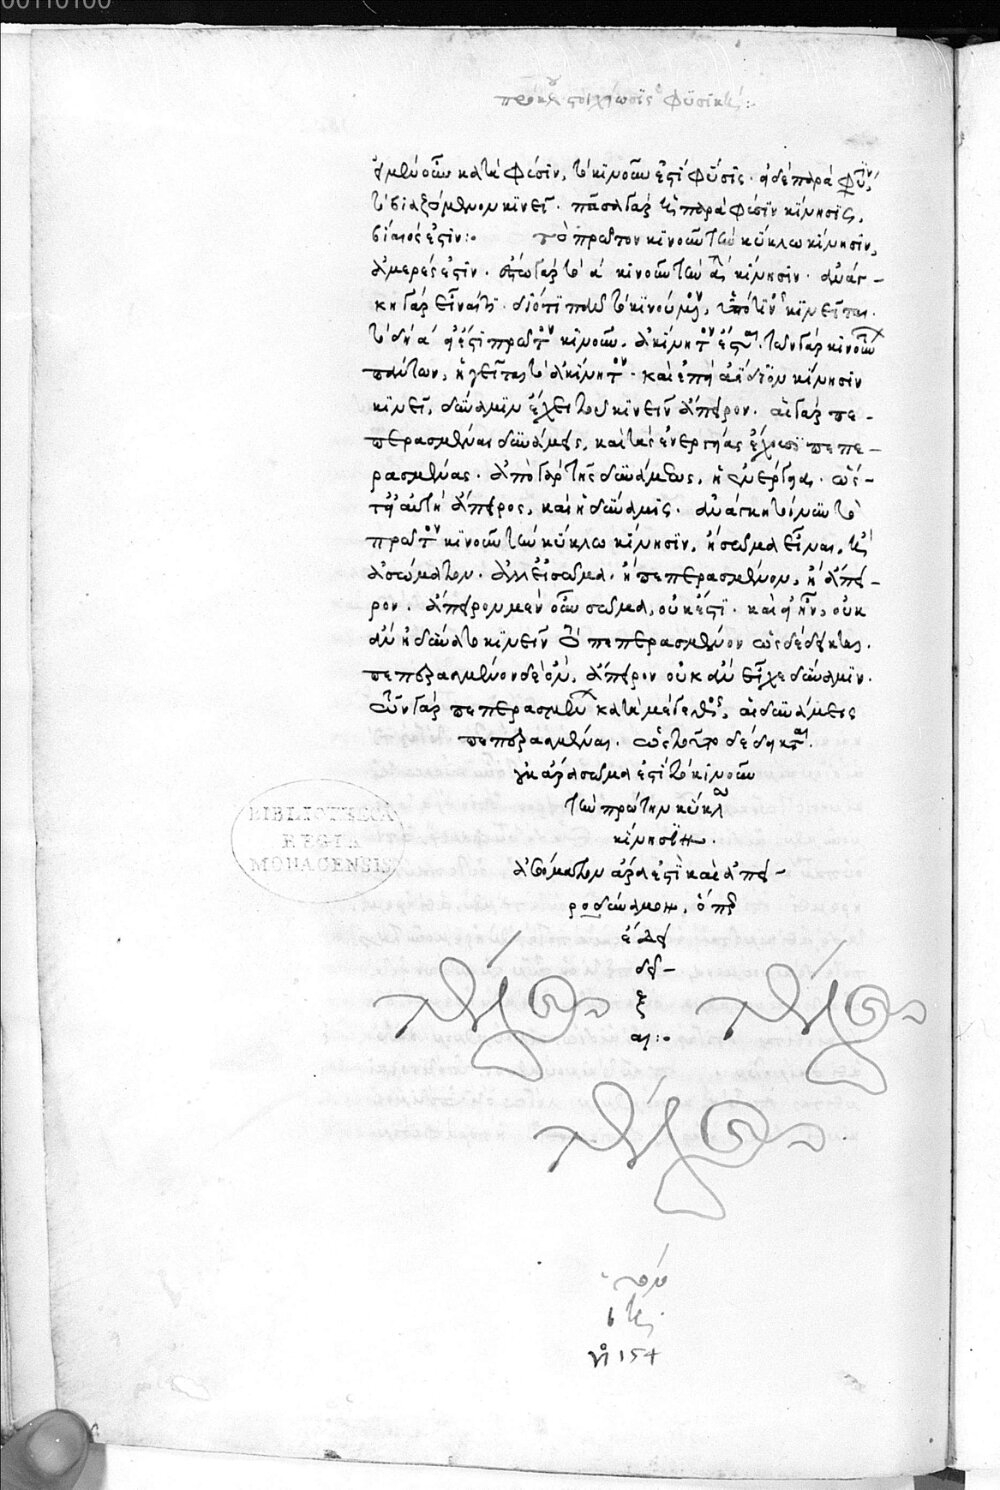 πρόκλου στοιχείωσις φυσική:
ἡ μὲν οὖν κατὰ φύσιν, τὸ κινοῦν ἐστὶ φύσις. ἡ δὲ παρὰ φύσιν,
τὸ βιαζόμενον κινεῖ. πᾶσα γὰρ ἡ παρὰ φύσιν κίνησις,
βίαιός ἐστιν: τὸ πρῶτον κινοῦν τὴν κύκλω κίνησιν,
ἀμερές ἐστιν. ἔστω γὰρ τὸ α κινοῦν τὴν α κίνησιν. ἀνάγ-
κη γὰρ εἶναί τι. διότι πᾶν τὸ κινούμενον, ὑπό τινος κινεῖται.
τὸ δὴ α εἰ ἐστὶ πρῶτον κινοῦν, ἀκίνητον ἔσται. τῶν γὰρ κινούντων
πάντων, ἡγεῖται τὸ ἀκίνητον. καὶ ἐπεὶ ἀΐδιον κίνησιν
κινεῖ, δύναμιν ἔχει τοῦ κινεῖν ἄπειρον. αἱ γὰρ πε-
περασμέναι δυνάμεις, καὶ τὰς ἐνεργείας ἔχουσι πεπε-
ρασμένας. ἀπὸ γὰρ τῆς δυνάμεως, ἡ ἐνέργεια. ὥς-
τε εἰ αὐτὴ ἄπειρος, καὶ ἡ δύναμις. ἀνάγκη τοίνυν τὸ
πρῶτον κινοῦν τὴν κύκλω κίνησιν, ἢ σῶμα εἶναι, ἢ
ἀσώματον. ἀλλ' εἰ σῶμα, ἢ πεπερασμένον, ἢ ἄπει-
ρον. ἄπειρον μὲν οὖν σῶμα, οὐκ ἔστι. καὶ εἰ ἦν, οὐκ
ἂν ἠδύνατο κινεῖν τὸ πεπερασμένον ὡς δέδεικται.
πεπερασμένον δὲ ὂν, ἄπειρον οὐκ ἂν εἶχε δύναμιν.
ὧν γὰρ πεπερασμένων κατὰ μέγεθος, αἱ δυνάμεις
πεπερασμέναι. ὡς τοῦτο δέδεικται.
οὐκ ἄρα σῶμα ἐστὶ τὸ κινοῦν
τὴν πρώτην κύκλω
κίνησιν.
ἀσώματον ἄρα ἐστὶ καὶ ἀπει-
ροδύναμον, ὅπερ
ἔδει
δεῖ-
ξ
αι:
τέλος τέλος
τέλος
BIBLIOTHECA
REGIA
MONACENSIS
No 154